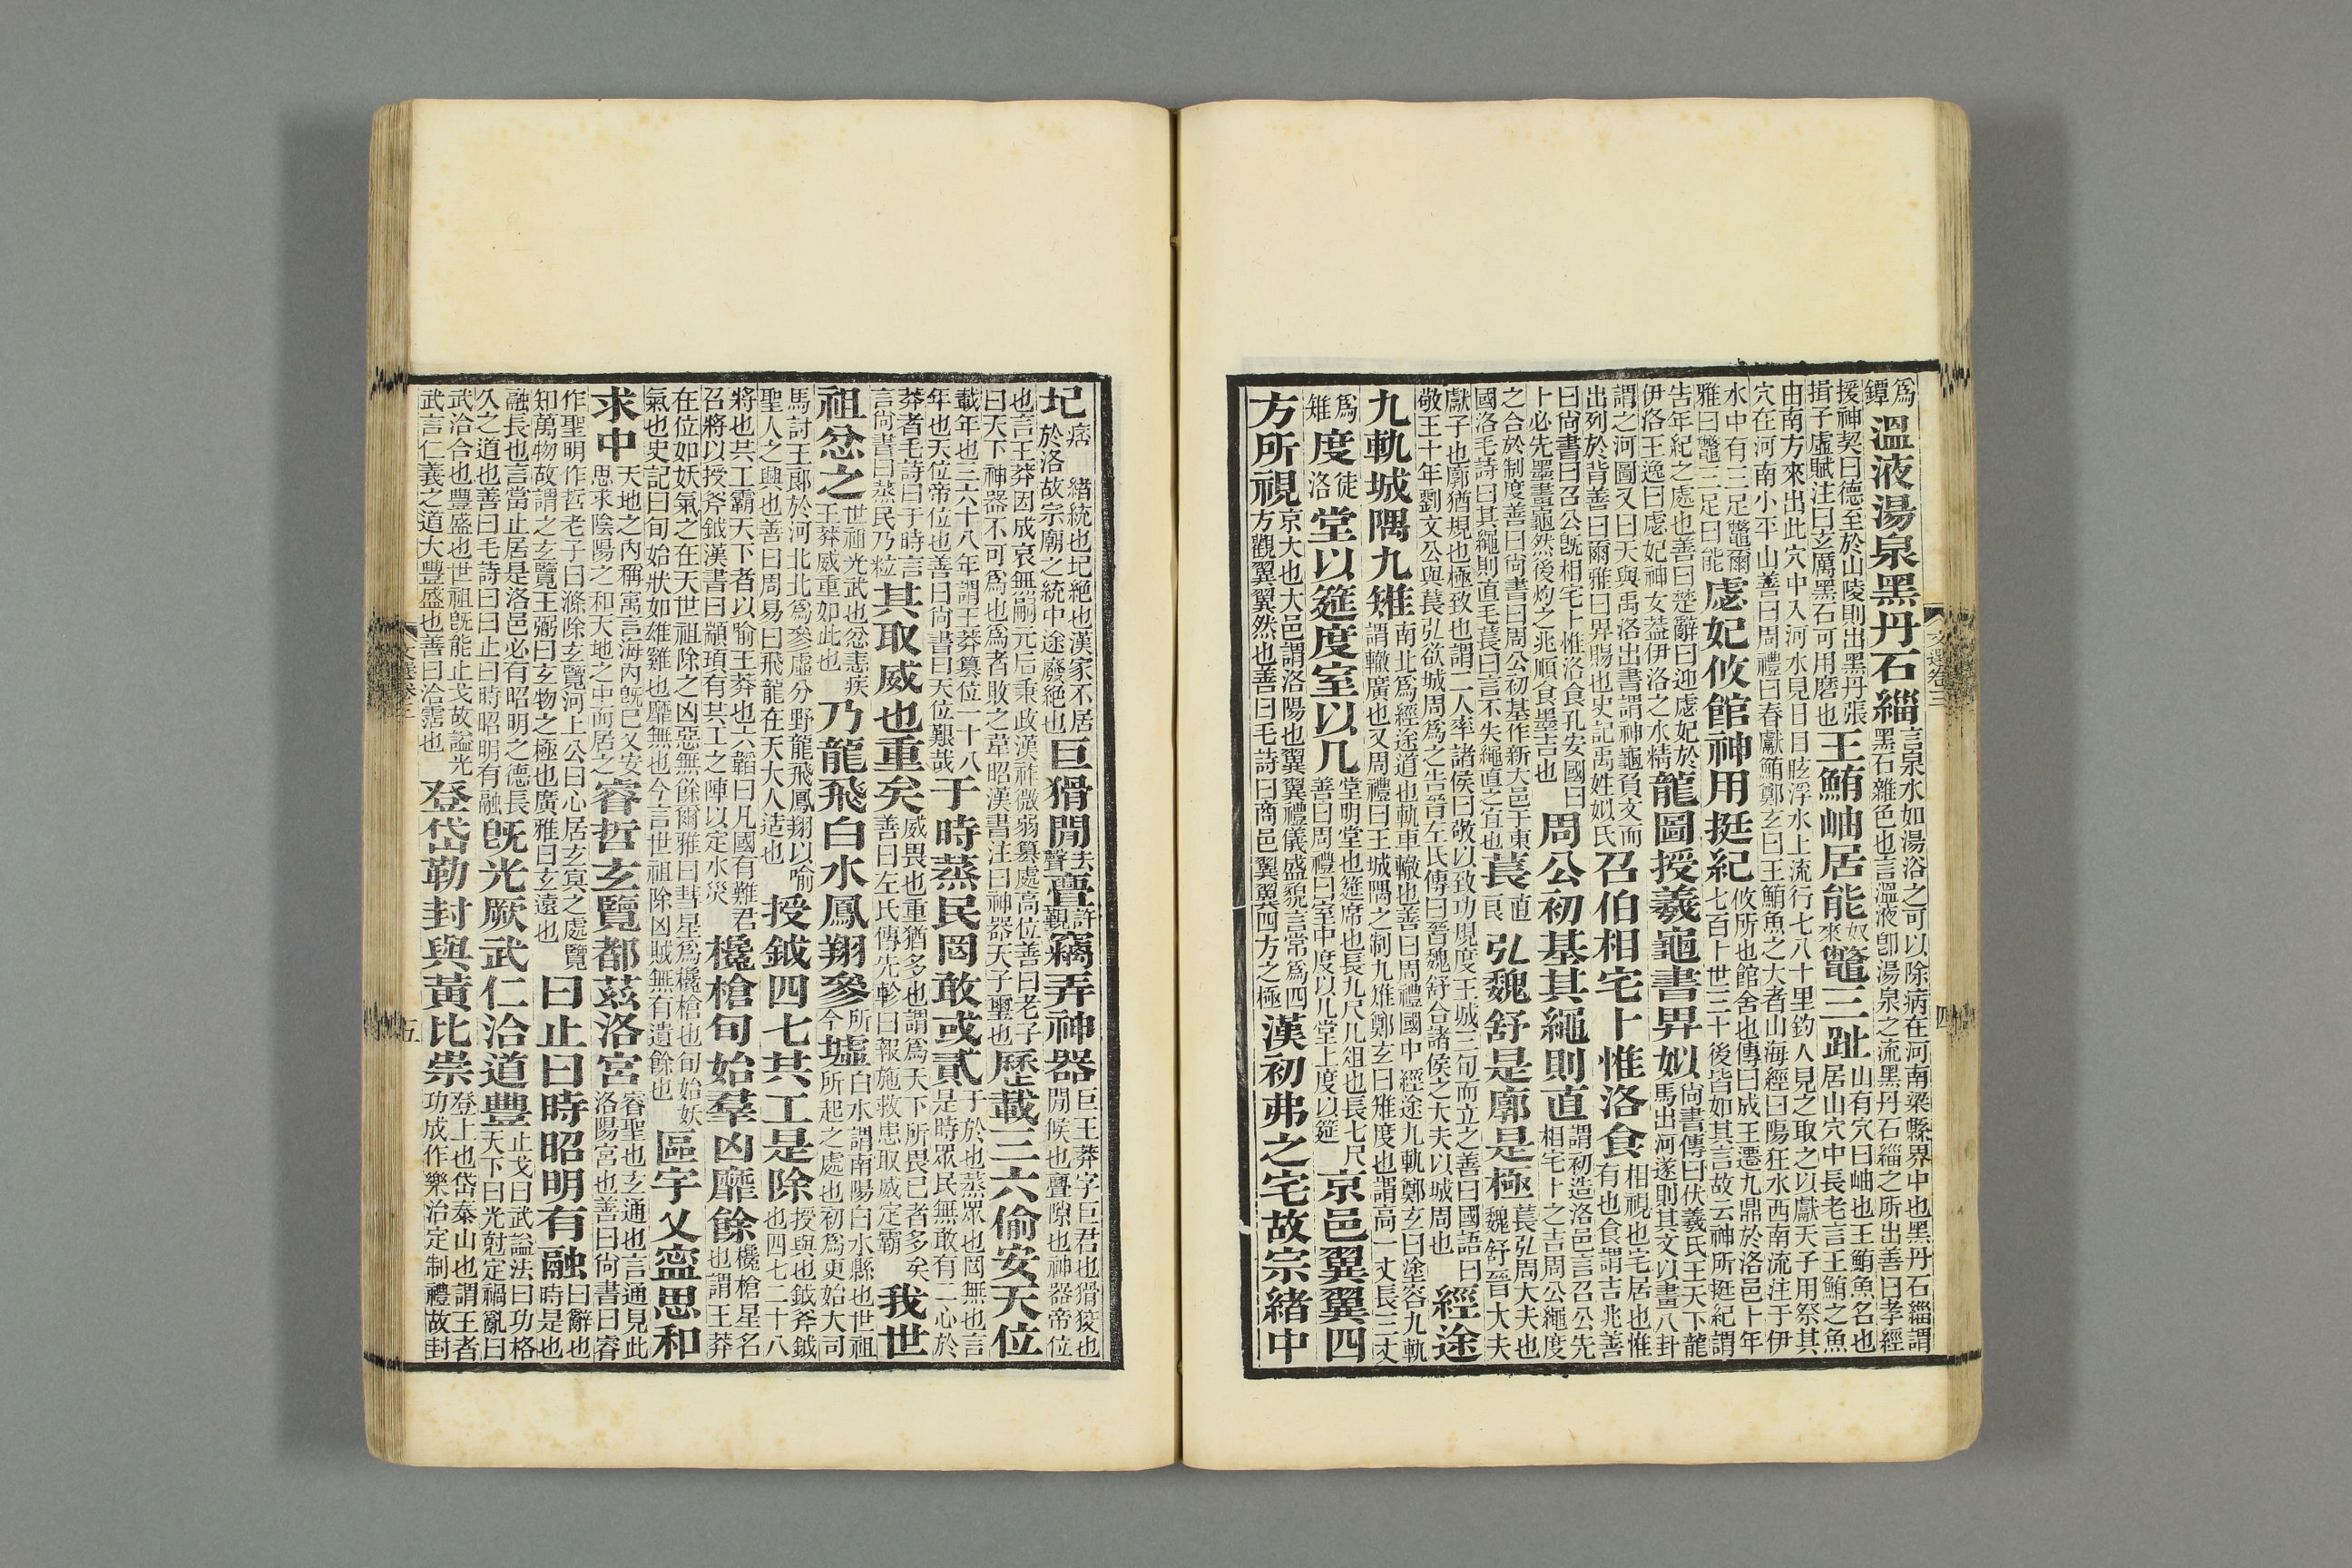 爲鐔溫液湯泉黑丹石緇言泉水如湯浴之可以除病在河南梁縣界中也黑丹石緇謂黑石雜色也言溫液卽湯泉之流黑丹石緇之所出善曰孝經
援神契曰德至於山陵則出黑丹張揖子虛賦注曰玄厲黑石可用磨也王鮪岫居能奴來鼈三趾山有穴曰岫也王鮪魚名也居山穴中長老言王鮪之魚
由南方來出此穴中入河水見日目眩浮水上流行七八十里釣人見之取之以獻天子用祭其穴在河南小平山善曰周禮曰春獻鮪鄭玄曰王鮪魚之大者山海經曰陽狂水西南流注于伊
水中有三足鼈爾雅曰鼈三足曰能虙妃攸館神用挺紀攸所也館舍也傳曰成王遷九鼎於洛邑卜年七百卜世三十後皆如其言故云神所挺紀謂
告年紀之處也善曰楚辭曰迎虙妃於伊洛王逸曰虙妃神女葢伊洛之水精龍圖授羲龜書畀姒尚書傳曰伏羲氏王天下龍馬出河遂則其文以畫八卦
謂之河圖又曰天與禹洛出書謂神龜負文而出列於背善曰爾雅曰畀賜也史記禹姓姒氏召伯相宅卜惟洛食相視也宅居也惟有也食謂吉兆善
曰尚書曰召公旣相宅卜惟洛食孔安國曰卜必先墨畫龜然後灼之兆順食墨吉也周公初基其繩則直謂初造洛邑言召公先相宅卜之吉周公繩度
之合於制度善曰尚書曰周公初基作新大邑于東國洛毛詩曰其繩則直毛萇曰言不失繩直之宜也萇直良弘魏舒是廓是極萇弘周大夫也魏舒晉大夫
獻子也廓猶規也極致也謂二人率諸侯曰敬以致功規度王城三旬而立之善曰國語曰敬王十年劉文公與萇弘欲城周爲之告晉左氏傳曰晉魏舒合諸侯之大夫以城周也經途
九軌城隅九雉南北爲經途道也軌車轍也善曰周禮國中經途九軌鄭玄曰塗容九軌謂轍廣也又周禮曰王城隅之制九雉鄭玄曰雉度也謂高一丈長三丈
爲雉度徒洛堂以筵度室以几堂明堂也筵席也長九尺几俎也長七尺善曰周禮曰室中度以几堂上度以筵京邑翼翼四
方所視京大也大邑謂洛陽也翼翼禮儀盛貌言常爲四方觀翼翼然也善曰毛詩曰商邑翼翼四方之極漢初弗之宅故宗緒中
文選卷三
四
圮痞緒統也圮絕也漢家不居於洛故宗廟之統中途廢絕也巨猾閒去聲舋許覲竊弄神器巨王莽字巨君也猾狡也閒候也舋隙也神器帝位
也言王莽因成哀無嗣元后秉政漢祚微弱篡處高位善曰老子曰天下神器不可爲也爲者敗之韋昭漢書注曰神器天子璽也歷載三六偷安天位
載年也三六十八年謂王莽篡位一十八年也天位帝位也善曰尚書曰天位艱哉于時蒸民罔敢或貳于於也蒸眾也罔無也言是時眾民無敢有二心於
莽者毛詩曰于時言言尚書曰蒸民乃粒其取威也重矣威畏也重猶多也謂爲天下所畏已者多矣善曰左氏傳先軫曰報施救患取威定霸我世
祖忿之世祖光武也忿恚疾王莽威重如此也乃龍飛白水鳳翔參所今墟白水謂南陽白水縣也世祖所起之處也初爲更始大司
馬討王郎於河北北爲參虛分野龍飛鳳翔以喻聖人之興也善曰周易曰飛龍在天大人造也授鉞四七共工是除授與也鉞斧鉞也四七二十八
將也共工霸天下者以喻王莽也六韜曰凡國有難君召將以授斧鉞漢書曰顓頊有共工之陣以定水災欃槍旬始羣凶靡餘欃槍星名也謂王莽
在位如妖氣之在天世祖除之凶惡無餘爾雅曰彗星爲欃槍也旬始妖氣也史記曰旬始狀如雄雞也靡無也今言世祖除凶賊無有遺餘也區宇乂寍思和
求中天地之內稱寓言海內旣已乂安思求陰陽之和天地之中而居之睿哲玄覽都茲洛宮睿聖也玄通也言通見此洛陽宮也善曰尚書曰睿
作聖明作哲老子曰滌除玄覽河上公曰心居玄寞之處覽知萬物故謂之玄覽王弼曰玄物之極也廣雅曰玄遠也曰止曰時昭明有融曰辭也時是也
融長也言當止居是洛邑必有昭明之德長久之道也善曰毛詩曰曰止曰時昭明有融旣光厥武仁洽道豐止戈曰武謚法曰功格天下曰光尅定禍亂曰
武洽合也豐盛也世祖旣能止戈故謚光武言仁義之道大豐盛也善曰洽霑也登岱勒封與黃比崇登上也岱泰山也謂王者功成作樂治定制禮故封
文選卷三
五